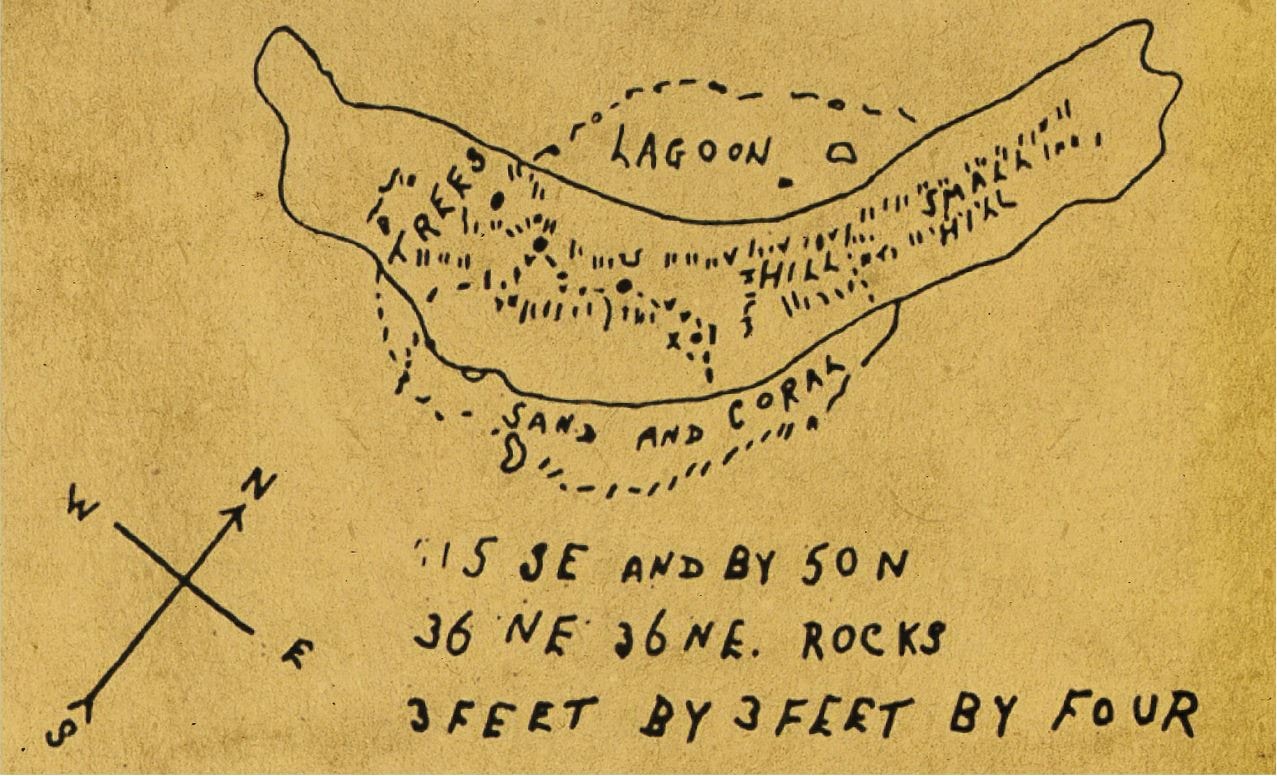 LAGOON
TREES
SMALL
HILL
HILL
SAND AND CORAL
N
W
E
S
15 SE AND BY 50 N
36 NE 36 NE. ROCKS
3 FEET BY 3 FEET BY FOUR